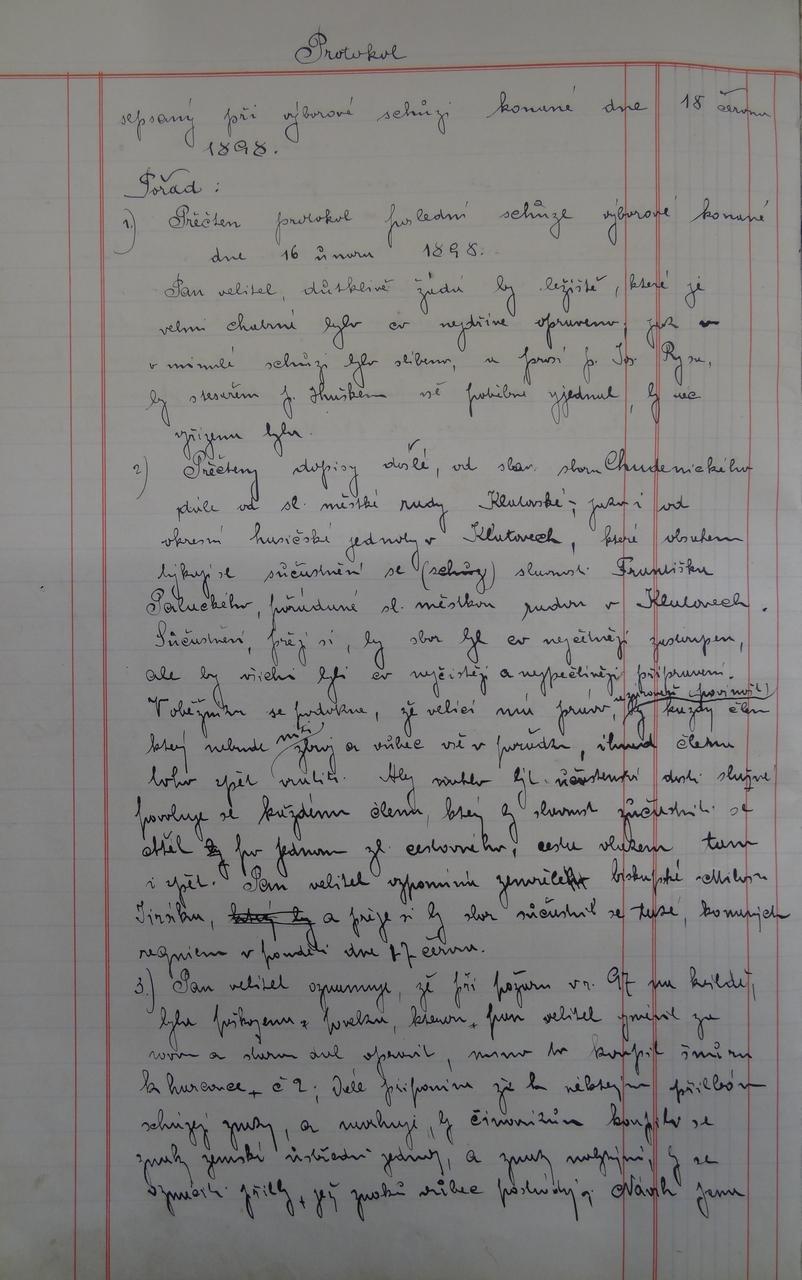 Protokol
sepsaný při výborové schůzi konané dne 18 června
1898.
Pořad :
1.) Přečten protokol poslední schůze výborové konané
dne 16 února 1898.
Pan velitel, důtklivě žádá by ležiště, které je
velmi chatrné bylo co nejdříve opraveno, jak
v minulé schůzi bylo slíbeno, a prosí p. Jos. Rysa,
by s tesařem p. Hruškem vše potřebné vyjednal, by věc
vyřízena byla.
2) Přečteny dopisy došlé, od slav. sboru Chudenického
dále od sl. městké rady Klatovské, jako i od
okresní hasičské jednoty v Klatovech, které obsahem
týkají se súčastnění se (schůzy) slavnosti Františka
Palackého, pořádané sl. městkou radou v Klatovech.
Súčastnění, přejí si, by sbor byl co nejčetněji zastoupen,
ale by všichni byli co nejčistěji a nejpečlivěji připraveni.
V oběžníku se podotkne, že velící má právo, by každý člen
který nebude míti zbroj a vůbec vše v pořádku, ihned člena
toho zpět vrátiti. Aby mohlo být účastenství dosti slušné
povoluje se každému členu, který by slavnost zúčastniti se
chtěl by po jednom zl. cestovného, cestu vlakem tam
i zpět. Pan velitel vzpomíná zemřelého biskupa
Jirsíka, který by a přeje si by sbor súčastnil se též, konaných
requiem v pondělí dne 27 června.
3.) Pan velitel oznamuje, že při požáru v r. 97 na
byla poškozena povelka, kterou pan velitel vyměnil za
novou a starou dal opravit, mimo to koupil šňůru
k harcovce č 2; Dále připomíná že k některým přilbám
schází znaky, a navrhuje, by činovníkům koupilo se
znaky zemské ústřední jednoty, a znaky nabyjní, by se
označili přilby, jež znaků vůbec postrádají. Návrh jemu